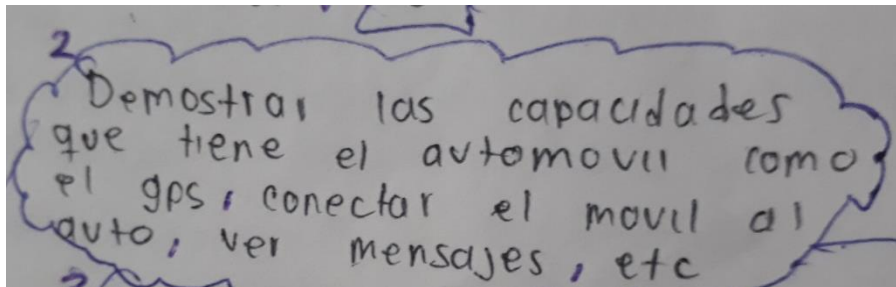 2
Demostrar las capacidades
que tiene el automovil como
el gps, conectar el movil al
auto, ver mensajes, etc